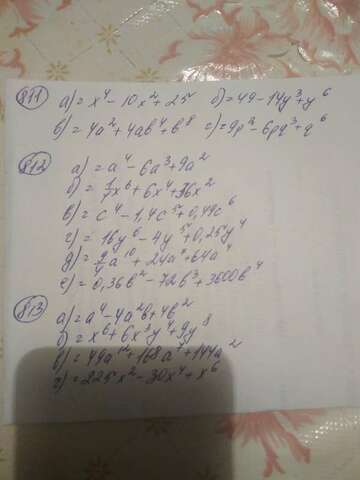 811 а) = x⁴ - 10x² + 25 б) = 49 - 14y³ + y⁶
в) = 4a² + 4ab⁴ + b⁸ г) = 9p² - 6pq³ + q⁶
812
а) = a⁴ - 6a³ + 9a²
б) = 1/4x⁶ + 6x⁴ + 36x²
в) = c⁴ - 1,4c⁵ + 0,49c⁶
г) = 16y⁶ - 4y⁵ + 0,25y⁴
д) = 9/4a¹⁰ + 24a⁷ + 64a⁴
е) = 0,36b² - 72b³ + 3600b⁴
813
а) = a⁴ - 4a²b + 4b²
б) = x⁶ + 6x³y⁴ + 9y⁸
в) = 49a¹² + 168a⁷ + 144a²
г) = 225x² - 30x⁴ + x⁶